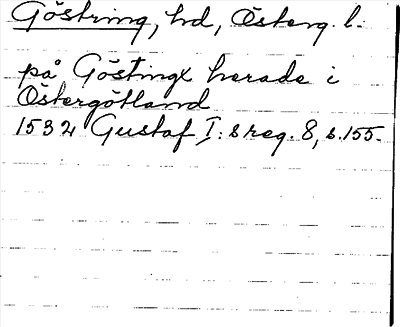 Göstring, hd, Österg. l.
på Göstingx herade i
Östergötland
1532 Gustaf I:s reg. 8, s. 155.